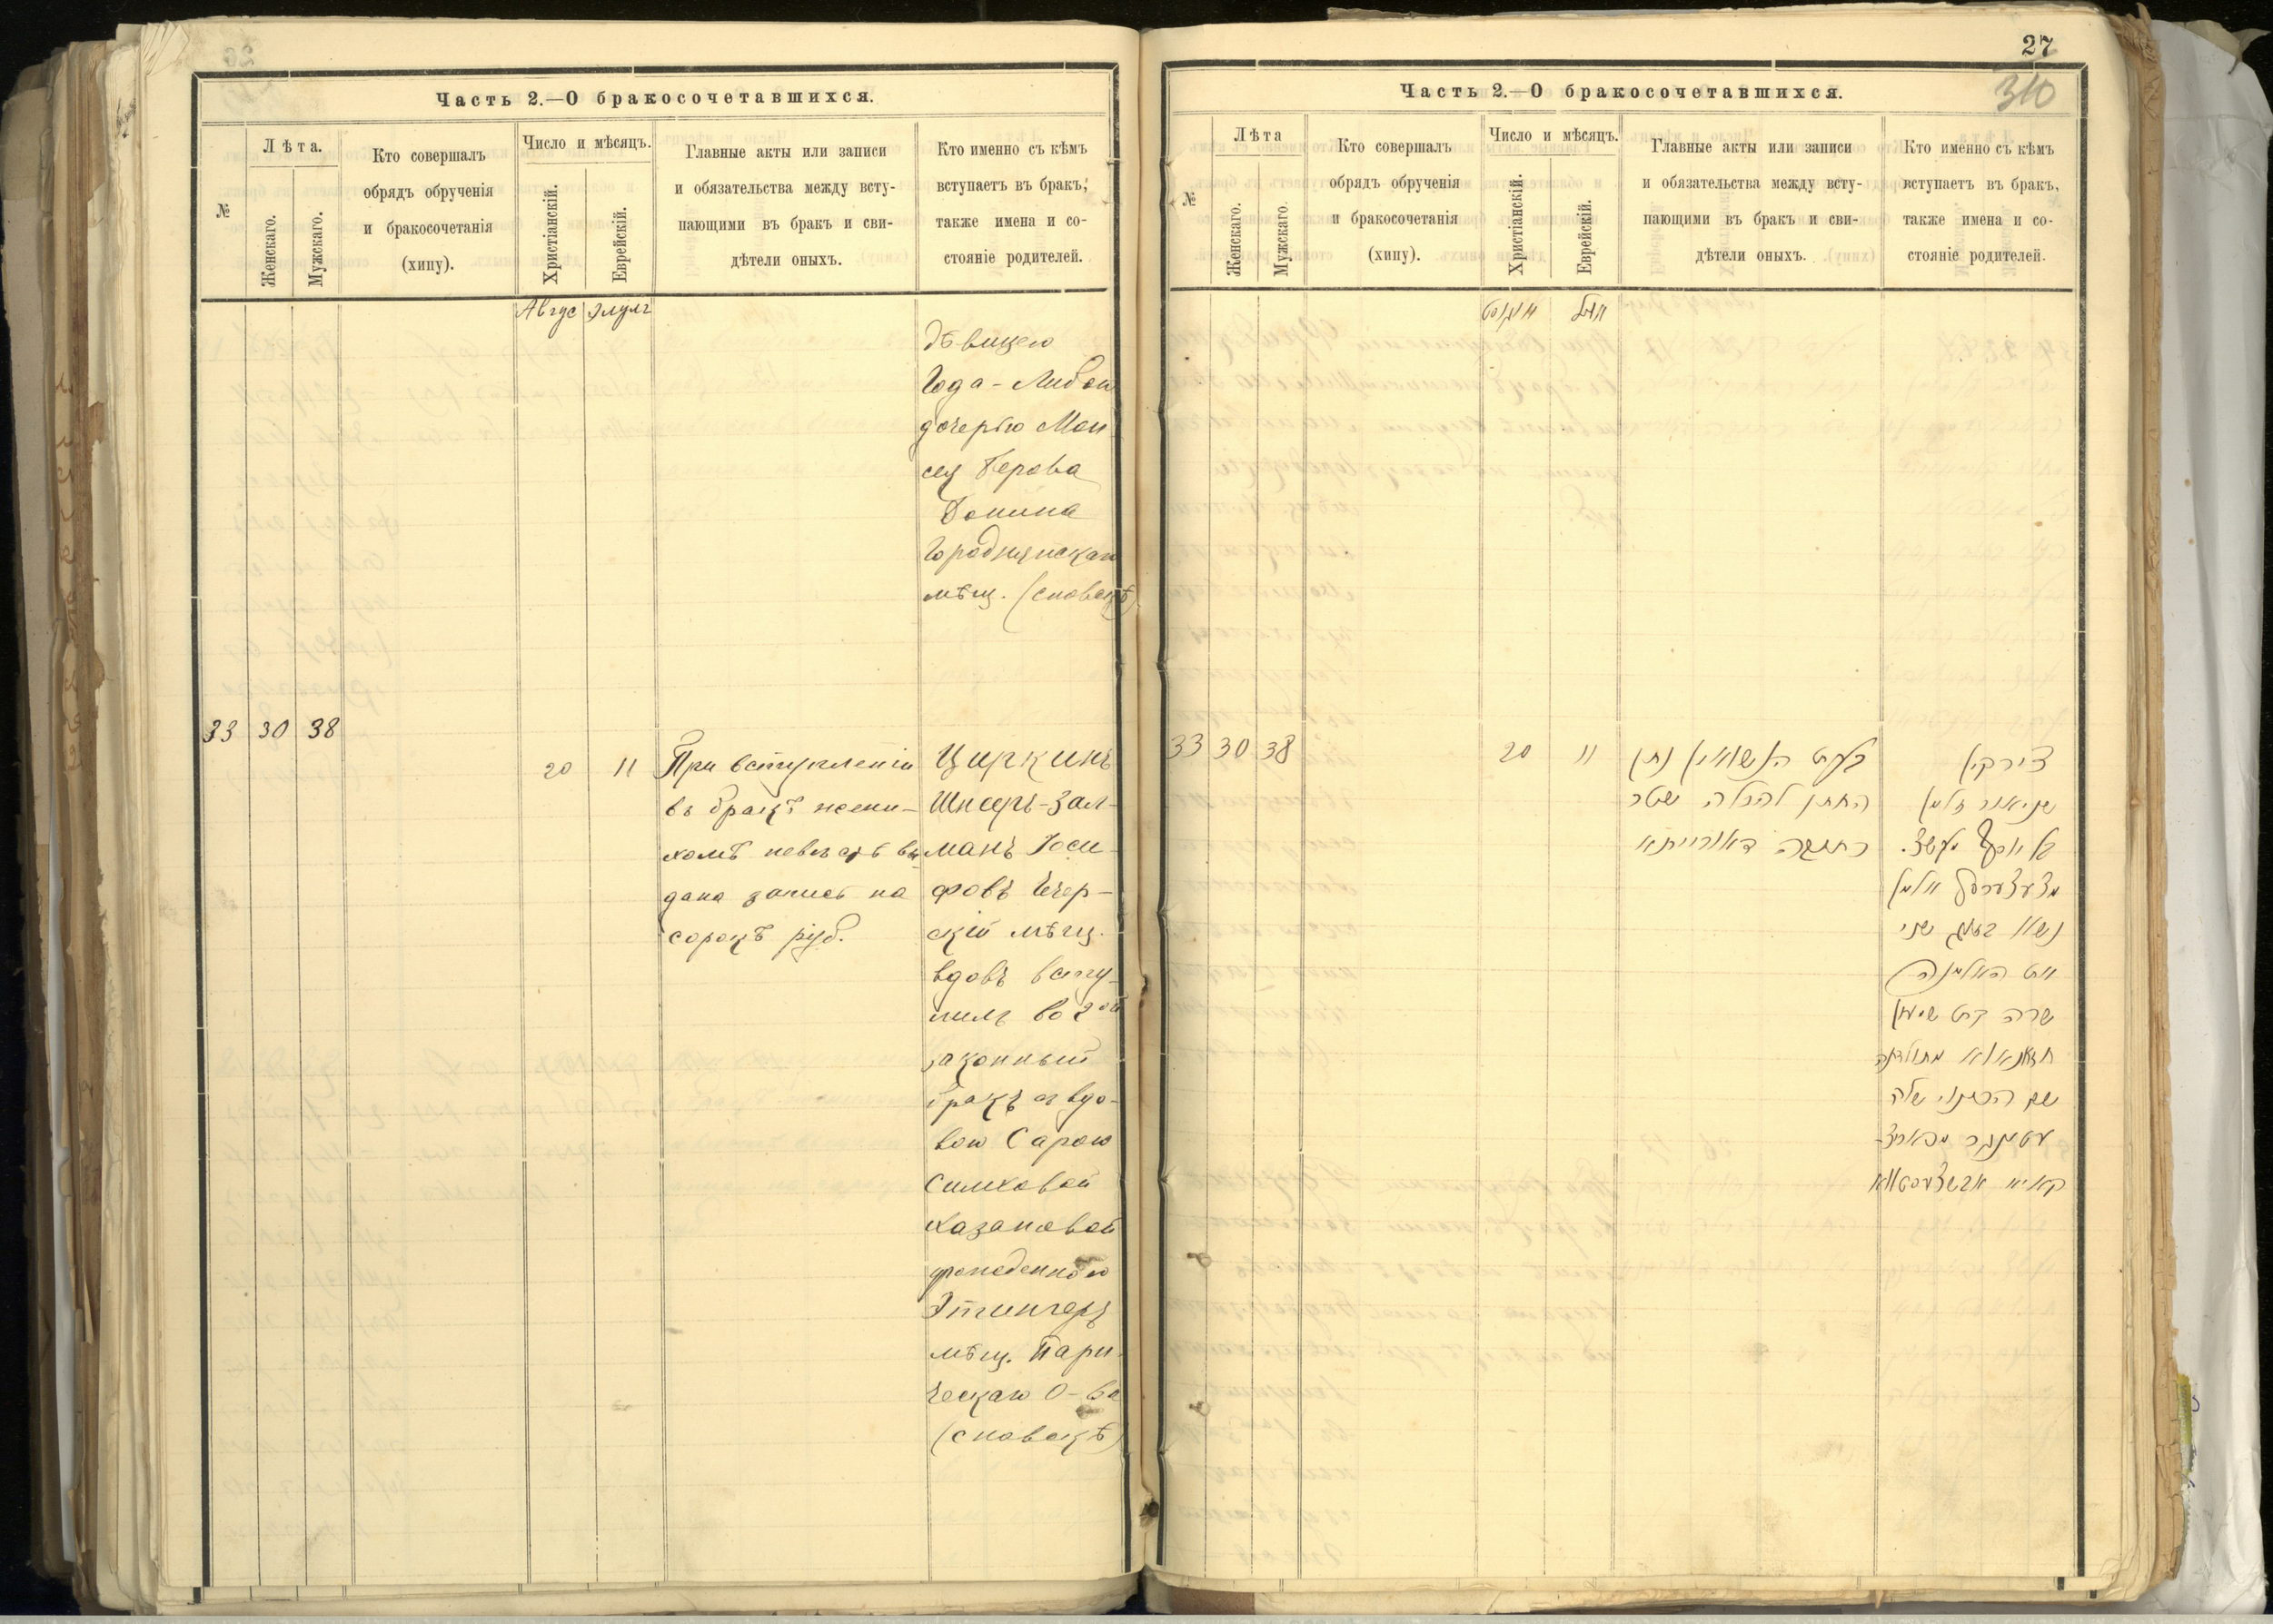 Часть 2.—О бракосочетавшихся.
№
Лѣта.
Женскаго.
Мужскаго.
Кто совершалъ
обрядъ обрученія
и бракосочетанія
(хипу).
Число и мѣсяцъ.
Христіанскій.
Еврейскій.
Главные акты или записи
и обязательства между всту-
пающими въ бракъ и сви-
дѣтели оныхъ.
Кто именно съ кѣмъ
вступаетъ въ бракъ,
также имена и со-
стояніе родителей.
Авгус Элулъ
дѣвицею
Года-Либою
дочерью Мои
сея Берова
Городнянскаго
мѣщ. (сновскѣ)
33 30 38
20 11
При вступленіи
въ бракъ жени-
хомъ невѣстѣ вы
дана запись на
сорокъ руб.
Циркинъ
Шнееръ-Зал-
манъ Іоси-
фовъ Чечер-
скій мѣщ.
вдовъ всту-
пилъ во 2ой
законный
бракъ съ вдо-
вою Сарою
Симховой
Хазановой
урожденною
Этингеръ
мѣщ. Пари
ческаго О-ва
(сновскѣ)
27
310
Часть 2.—О бракосочетавшихся.
№
Лѣта
Женскаго.
Мужскаго.
Кто совершалъ
обрядъ обрученія
и бракосочетанія
(хипу).
Число и мѣсяцъ.
Христіанскій.
Еврейскій.
Главные акты или записи
и обязательства между всту-
пающими въ бракъ и сви-
дѣтели оныхъ.
Кто именно съ кѣмъ
вступаетъ въ бракъ,
также имена и со-
стояніе родителей.
אויגוסט אלול
33 30 38
20 11
בעת הנשואין נתן
החתן להכלה שטר
כתובה דאורייתא
צירקין
שניאור זלמן
מעשצ.
אלמן
נשא שני
את האלמנה
שרה בת
שם שלה
עטינגר